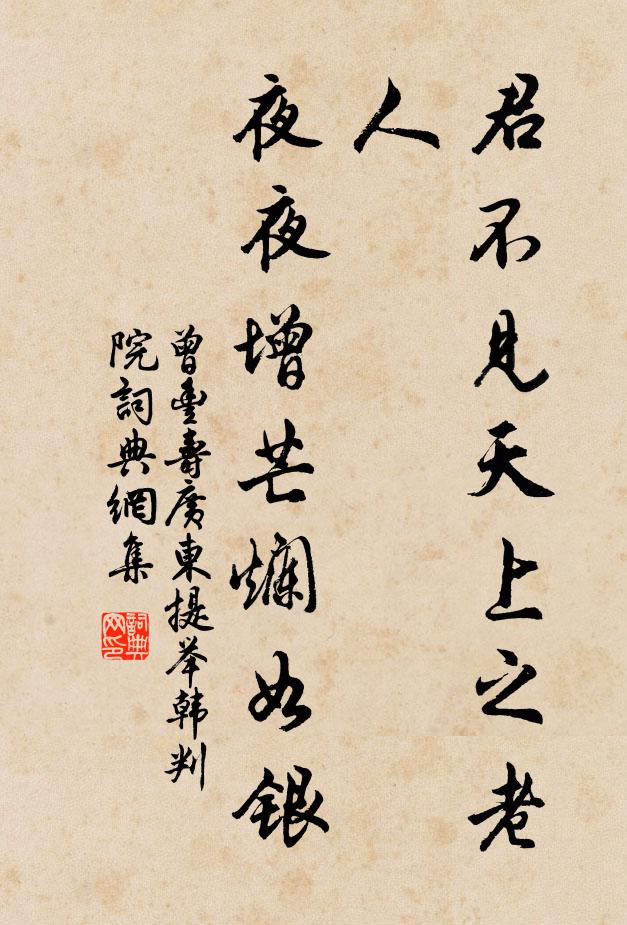 君不見天上之老
人
夜夜增芒爛如銀
曾豐壽廣東提举韩判
院詞典網集
詞典
网印